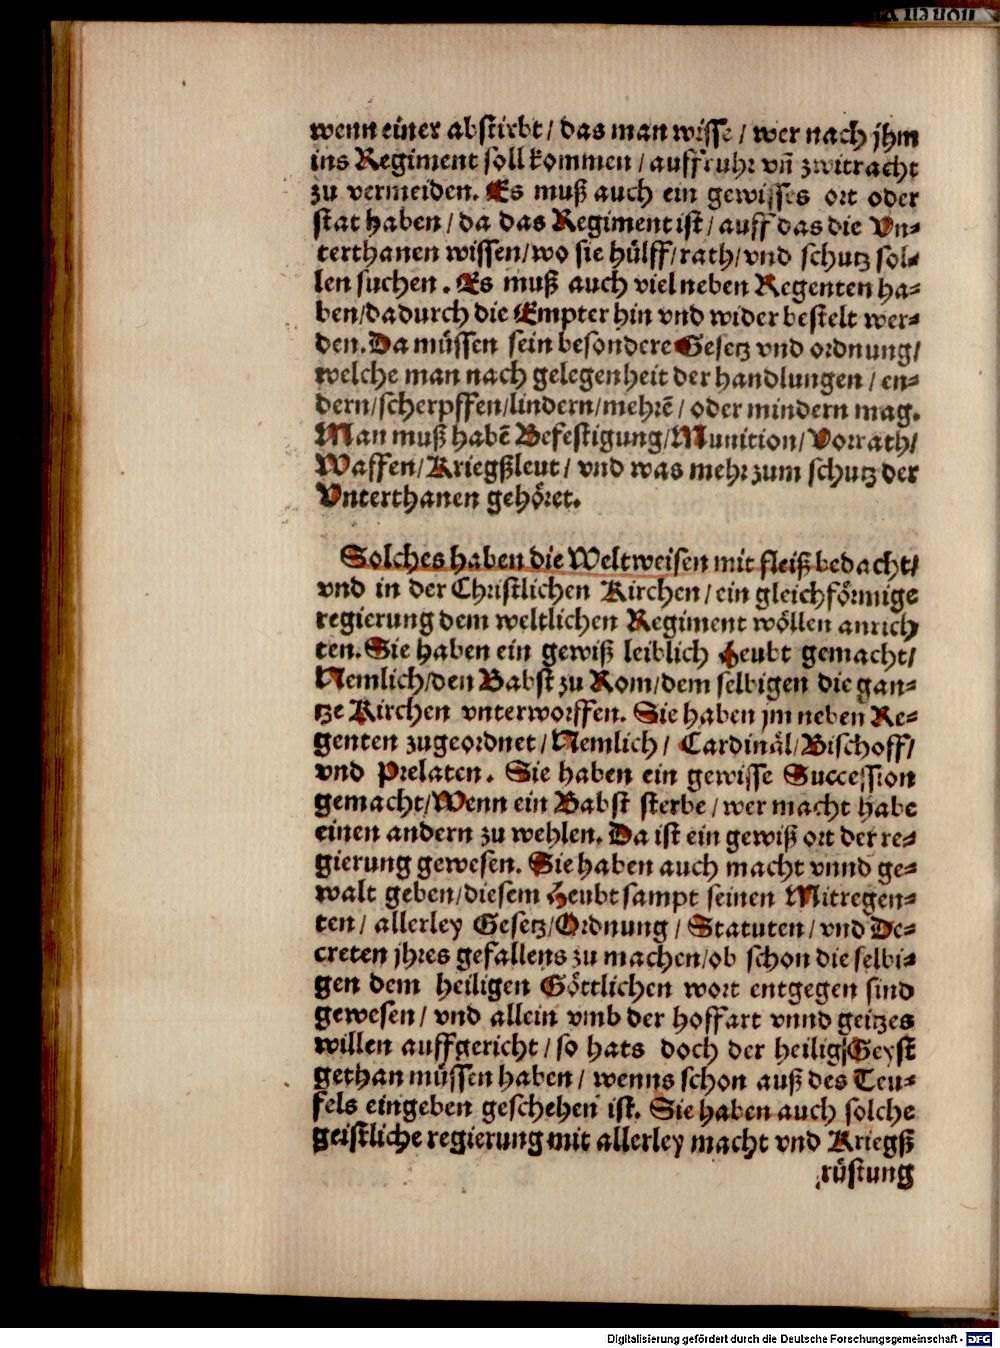 wenn einer abstirbt / das man wisse / wer nach jhm
ins Regiment soll kommen / auffruhr vn̄ zwitracht
zu vermeiden. Es muß auch ein gewisses ort oder
stat haben / da das Regiment ist / auff das die Vn⸗
terthanen wissen/wo sie hülff/rath/vnd schutz sol⸗
len suchen. Es muß auch viel neben Regenten ha⸗
ben/dadurch die Empter hin vnd wider bestelt wer⸗
den. Da müssen sein besondere Gesetz vnd ordnung/
welche man nach gelegenheit der handlungen / en⸗
dern/scherpffen/lindern/mehrē / oder mindern mag.
Man muß habē Befestigung/Munition/Vorrath/
Waffen/Kriegßleut / vnd was mehr zum schutz der
Vnterthanen gehöret.
Solches haben die Weltweisen mit fleiß bedacht/
vnd in der Christlichen Kirchen / ein gleichförmige
regierung dem weltlichen Regiment wöllen anrich
ten. Sie haben ein gewiß leiblich Heubt gemacht/
Nemlich/den Babst zu Rom/dem selbigen die gan⸗
tze Kirchen vnterworffen. Sie haben jm neben Re⸗
genten zugeordnet / Nemlich / Cardinäl/Bischoff/
vnd Prelaten. Sie haben ein gewisse Succession
gemacht/Wenn ein Babst sterbe / wer macht habe
einen andern zu wehlen. Da ist ein gewiß ort der re⸗
gierung gewesen. Sie haben auch macht vnnd ge⸗
walt geben/diesem Heubt sampt seinen Mitregen⸗
ten / allerley Gesetz/Ordnung / Statuten / vnd De⸗
creten jhres gefallens zu machen/ob schon die selbi⸗
gen dem heiligen Göttlichen wort entgegen sind
gewesen / vnd allein vmb der hoffart vnnd geitzes
willen auffgericht / so hats doch der heilig Geyst
gethan müssen haben / wenns schon auß des Teu⸗
fels eingeben geschehen ist. Sie haben auch solche
geistliche regierung mit allerley macht vnd Kriegß
rüstung
Digitalisierung gefördert durch die Deutsche Forschungsgemeinschaft - DFG